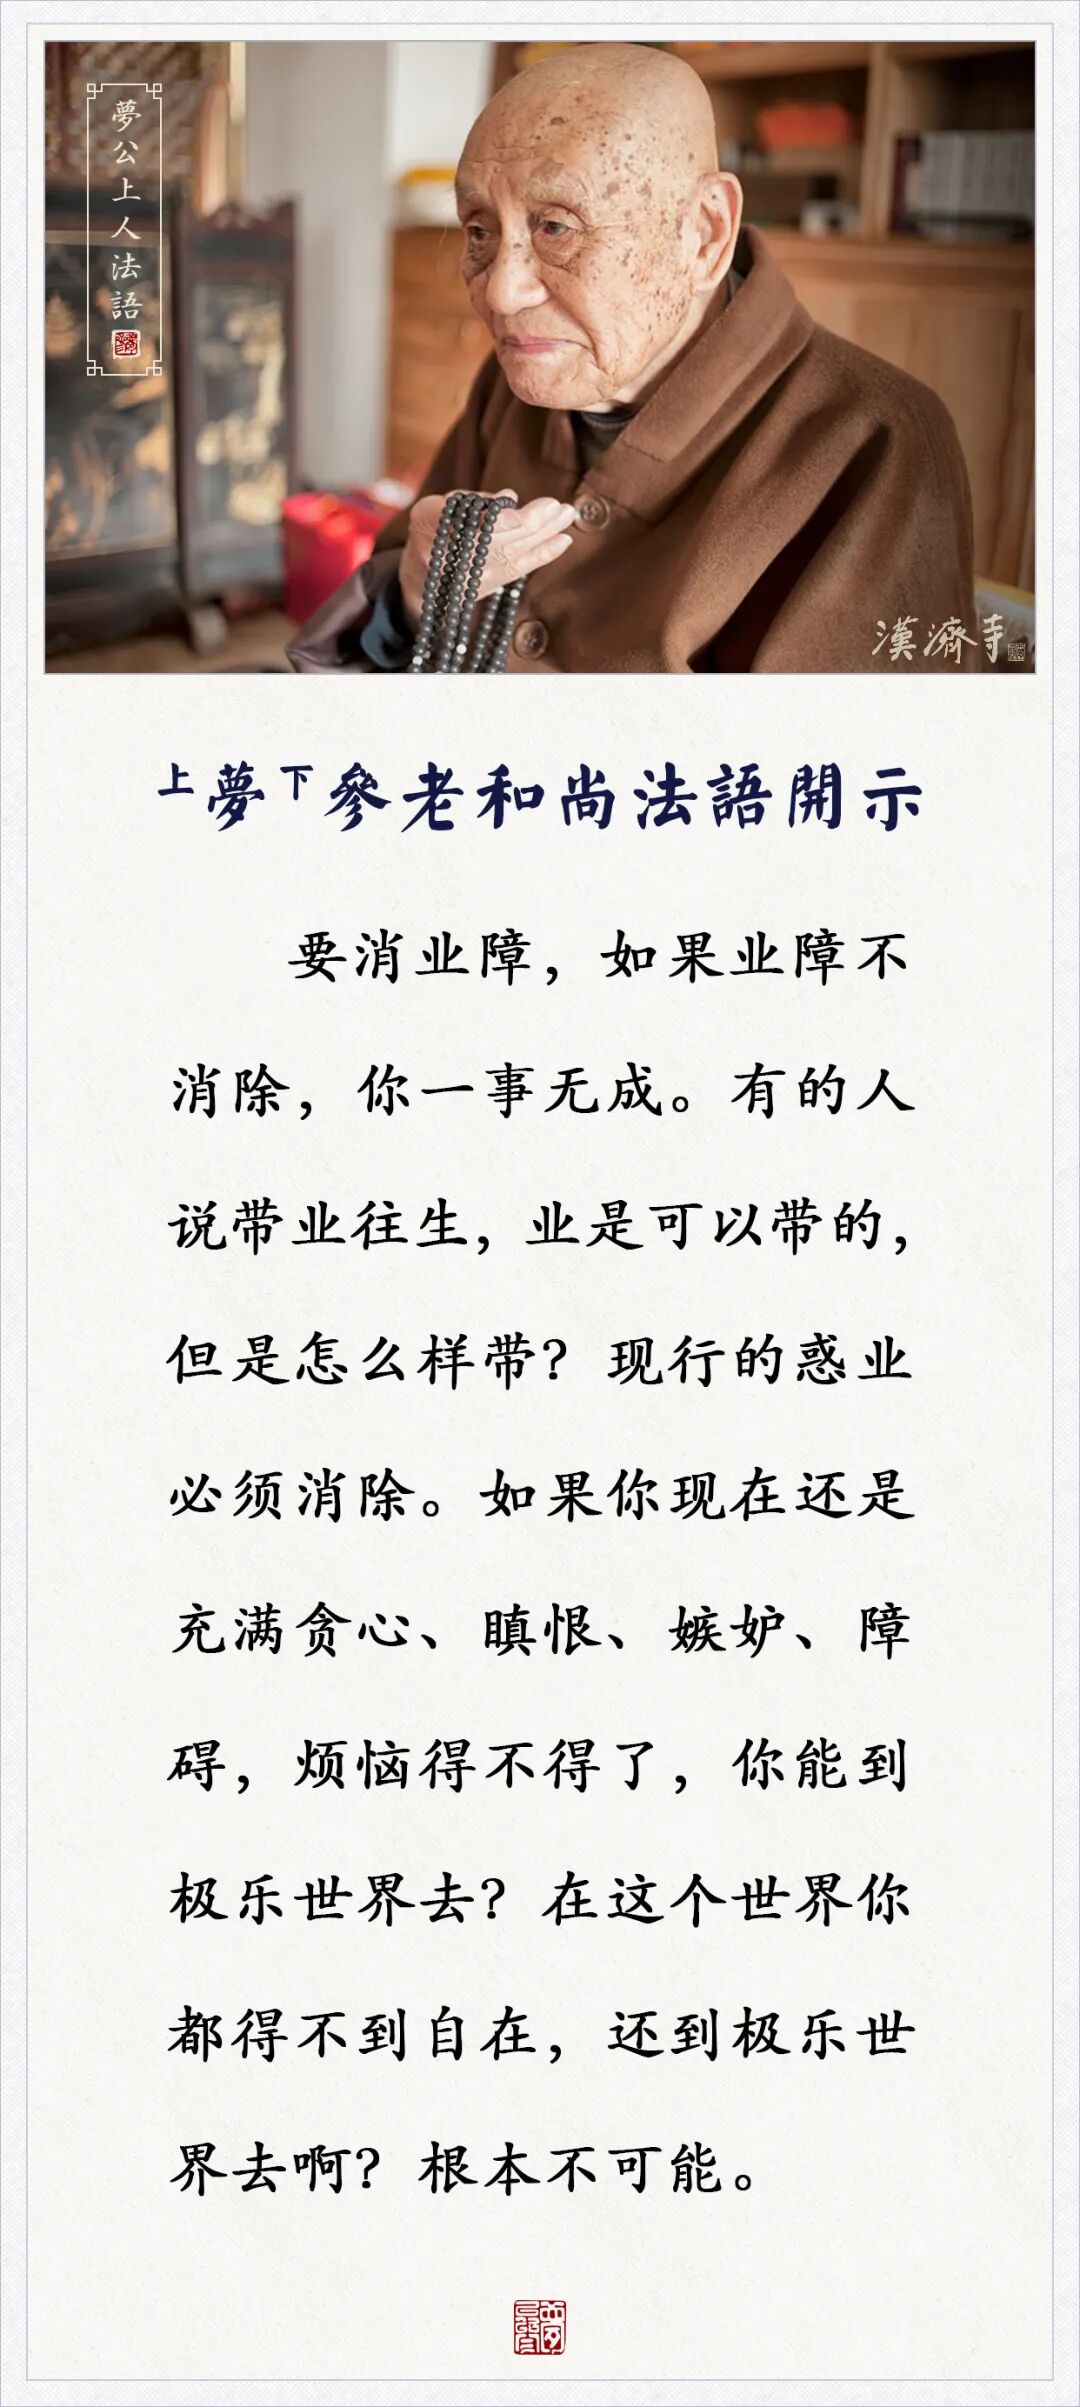 夢公上人法語
漢濟寺
上夢下參老和尚法語開示
要消业障，如果业障不
消除，你一事无成。有的人
说带业往生，业是可以带的，
但是怎么样带？现行的惑业
必须消除。如果你现在还是
充满贪心、瞋恨、嫉妒、障
碍，烦恼得不得了，你能到
极乐世界去？在这个世界你
都得不到自在，还到极乐世
界去啊？根本不可能。